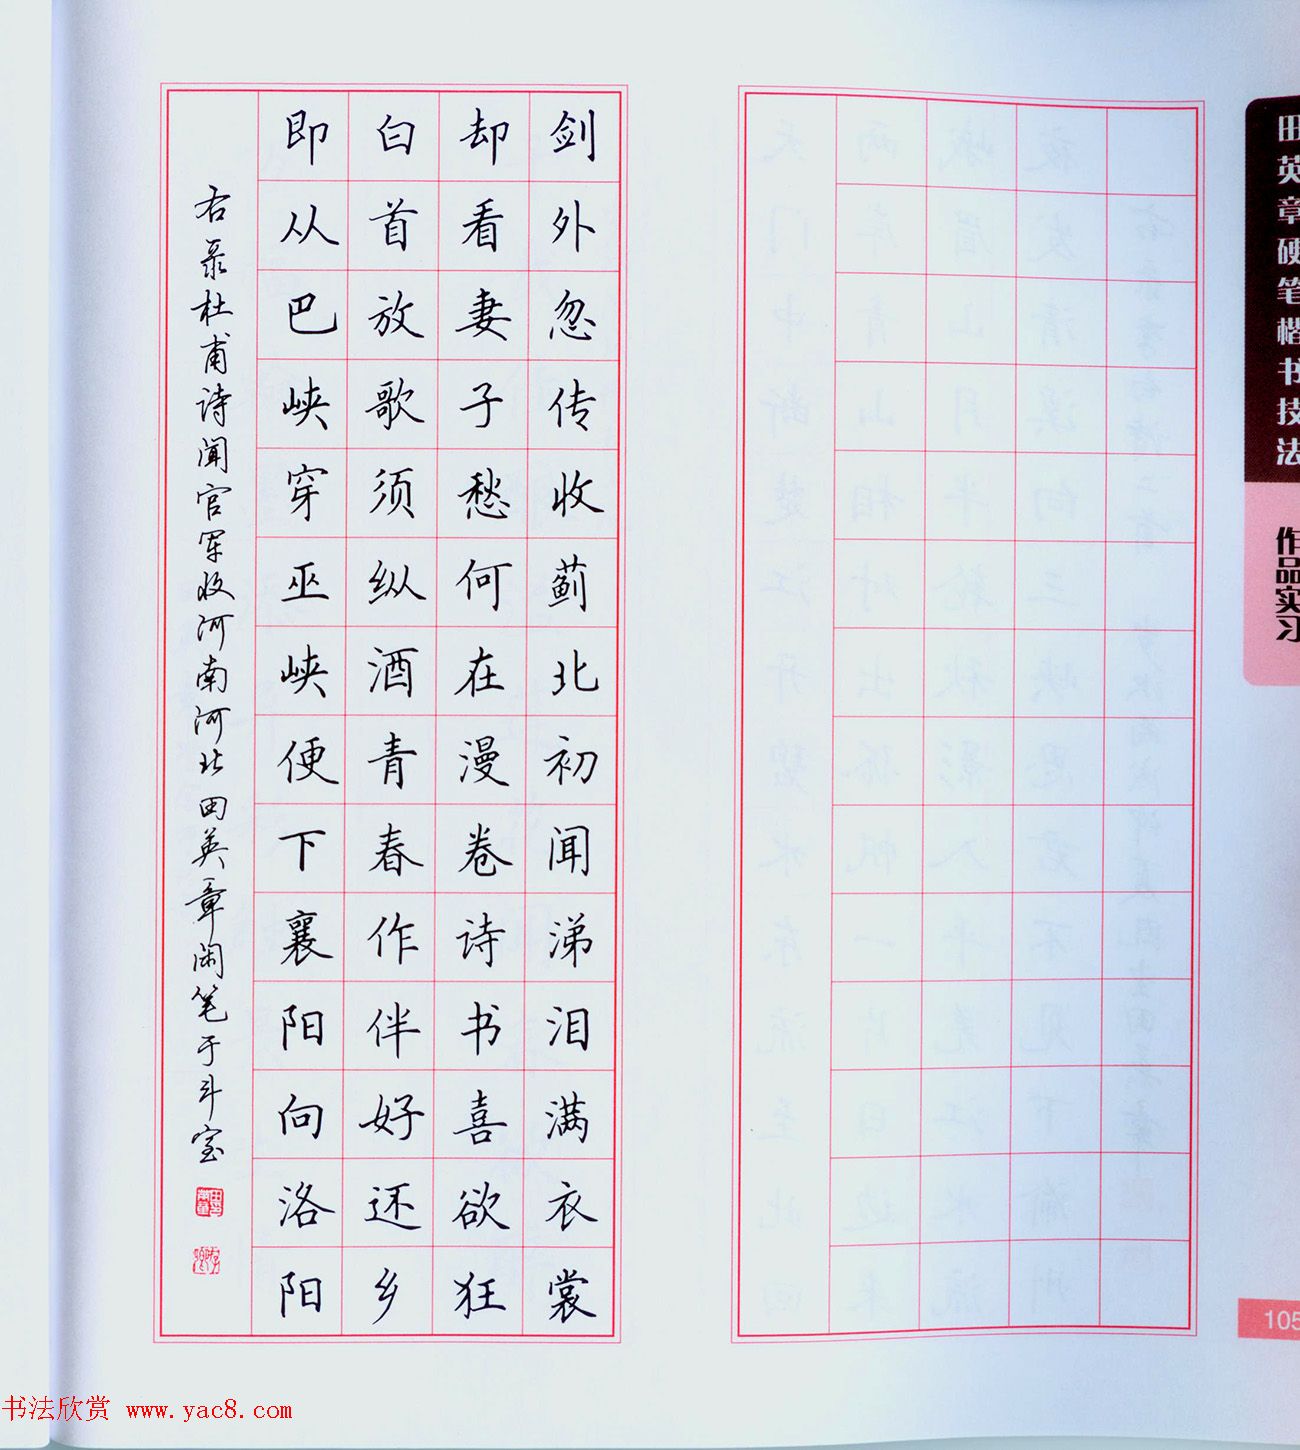 剑外忽传收蓟北初闻涕泪满衣裳
却看妻子愁何在漫卷诗书喜欲狂
白首放歌须纵酒青春作伴好还乡
即从巴峡穿巫峡便下襄阳向洛阳
右录杜甫诗闻官军收河南河北 田英章闲笔于斗室
田英章硬笔楷书技法
作品实习
105
书法欣赏 www.yac8.com